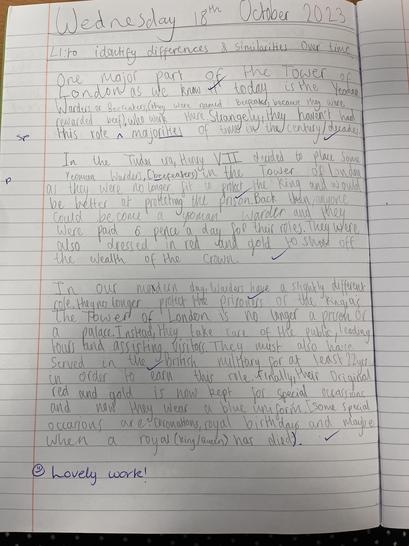 Wednesday 18th October 2023
LI: to identify differences & similarities over time.
One major part of the Tower of
London as we know it today is the Yeoman
Warders or Beefeaters (they were named beefeater because they were
rewarded beef) who work there. Strangely, they haven't had
sp this role a majorities of time in the century / decades.
In the Tudor era, Henry VII decided to place some
p Yeoman Warders, (Beefeaters) in the Tower of London
as they were no longer fit to protect the King and would
be better at protecting the prison. Back then, anyone
could become a yeoman Warder and they
were paid 6 pence a day for their roles. They were
also dressed in red and gold to show off
the wealth of the Crown.
In our modern day, Warders have a slightly different
role. They no longer protect the prisoners or the King as
The Tower of London is no longer a prison or
a palace. Instead, they take care of the public, leading
tours and assisting visitors. They must also have
served in the british military for at least 22yrs
in order to earn this role. Finally, their original
red and gold is now kept for special occasions
and now they wear a blue uniform (some special
occasions are coronations, royal birthdays and maybe
when a royal (king/queen) has died).
Lovely work!